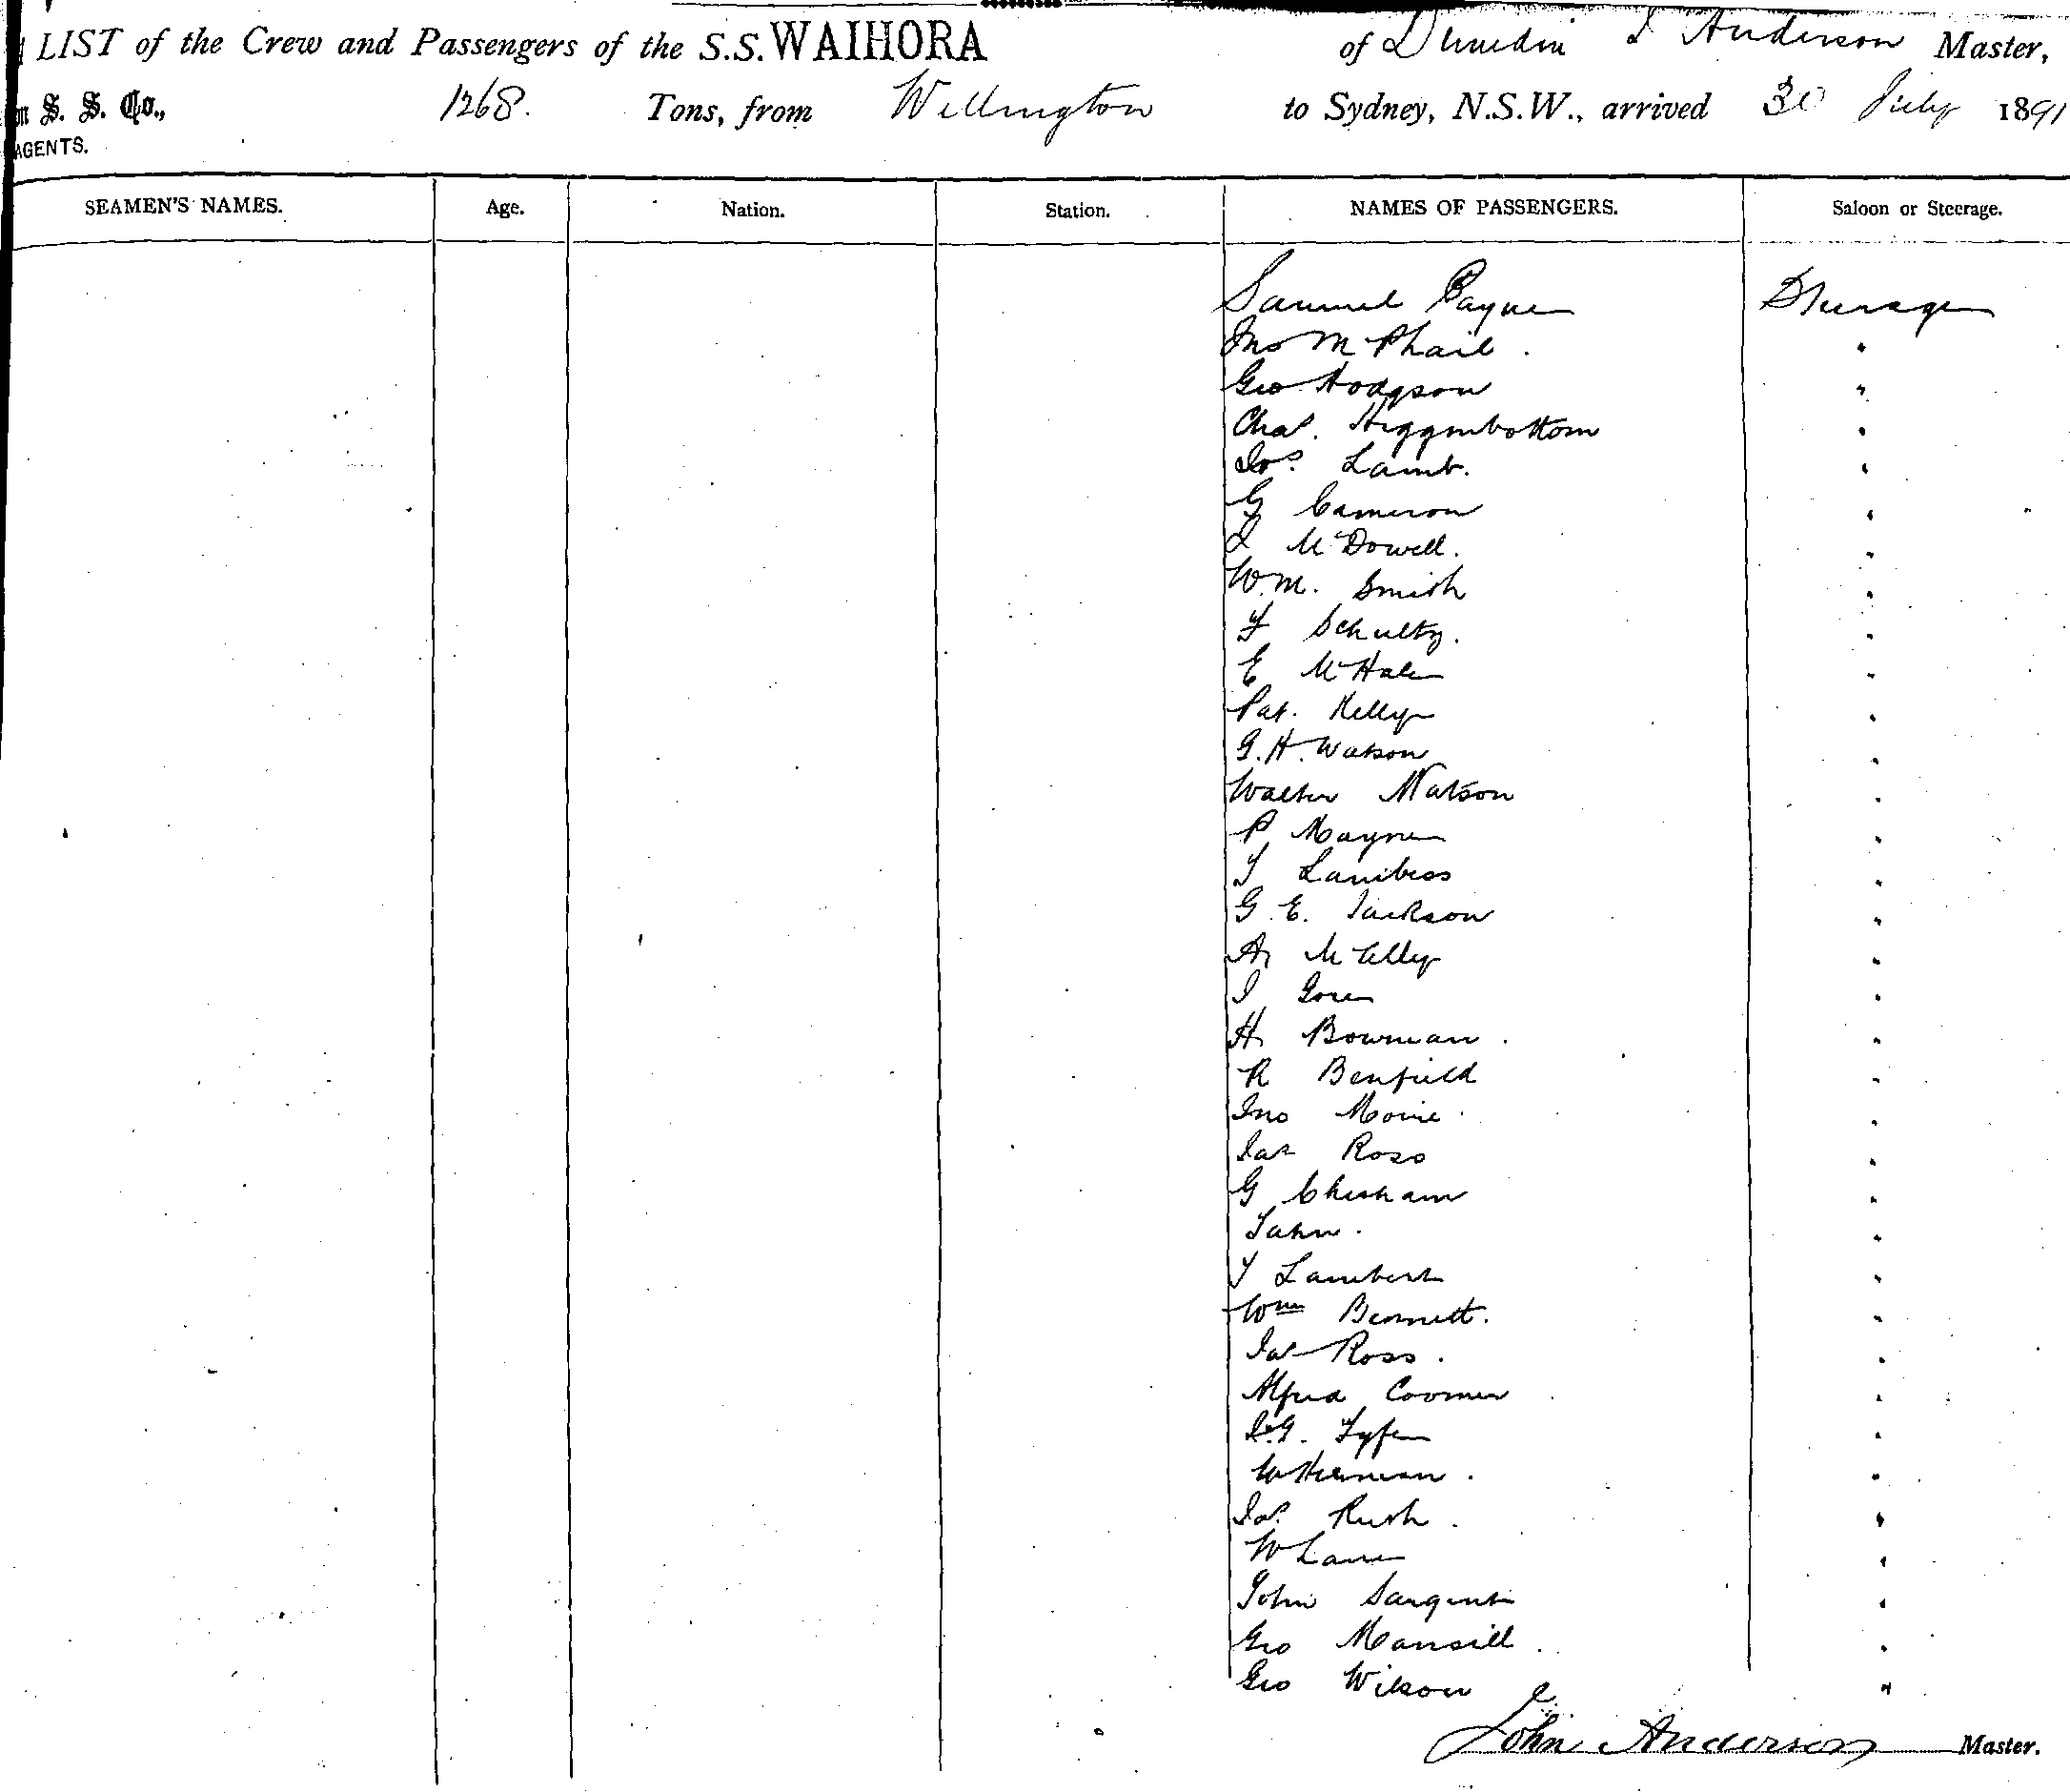 LIST of the Crew and Passengers of the S.S. WAIHORA of Dunedin J Anderson Master,
S. S. Co., 1268. Tons, from Wellington to Sydney, N.S.W., arrived 30 July 1891
AGENTS.
SEAMEN'S NAMES. Age. Nation. Station. NAMES OF PASSENGERS. Saloon or Steerage.
Samuel Payne Steerage
Jno McPhail . "
Geo Hodgson "
Chas. Higginbottom "
Jos. Lamb. "
G Cameron "
J McDowell. "
W.M. Smith "
F Schultz. "
E McHale "
Pat. Kelly "
G.H. Watson "
Walter Watson "
P Mayne "
T "
G.E. Jackson "
A "
J Gore "
H Bowman . "
R Benfield "
Jno "
Jas Ross "
G Chisham "
"
T Lambert "
Wm Bennett. "
Jas Ross . "
Alfred Coomer "
J.G. Fyfe "
W Herman . "
Jas. Rush . "
W Lane "
John Sargent "
Geo Mansill . "
Geo Wilson "
John Anderson Master.